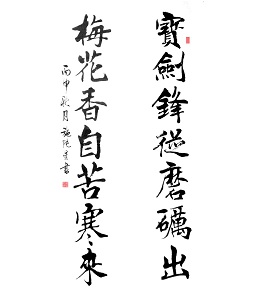 寶劍鋒從磨礪出
梅花香自苦寒來
丙申秋月